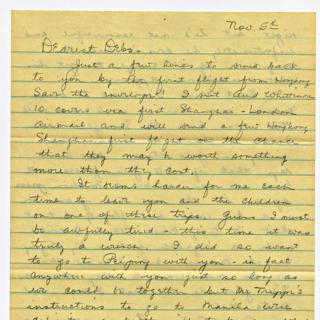 Nov. 5th
Dearest Debs.
Just a few lines to send back
to you by the first flight from Hongkong
Save the envelope! I put and Whiteman
10 covers via first Shanghai - London
Airmail and will send a few Hongkong
Shanghai first flight on the chance
that they may be worth something
more than they cost.
It seems harder for me each
time to leave you and the children
on one of these trips. Guess I must
be awfully tired - this time it was
truly a wrench. I did so want
to go to Peiping with you - in fact
anywhere with you just so long as
we could be together but Mr Trippe's
instructions to go to Manila were